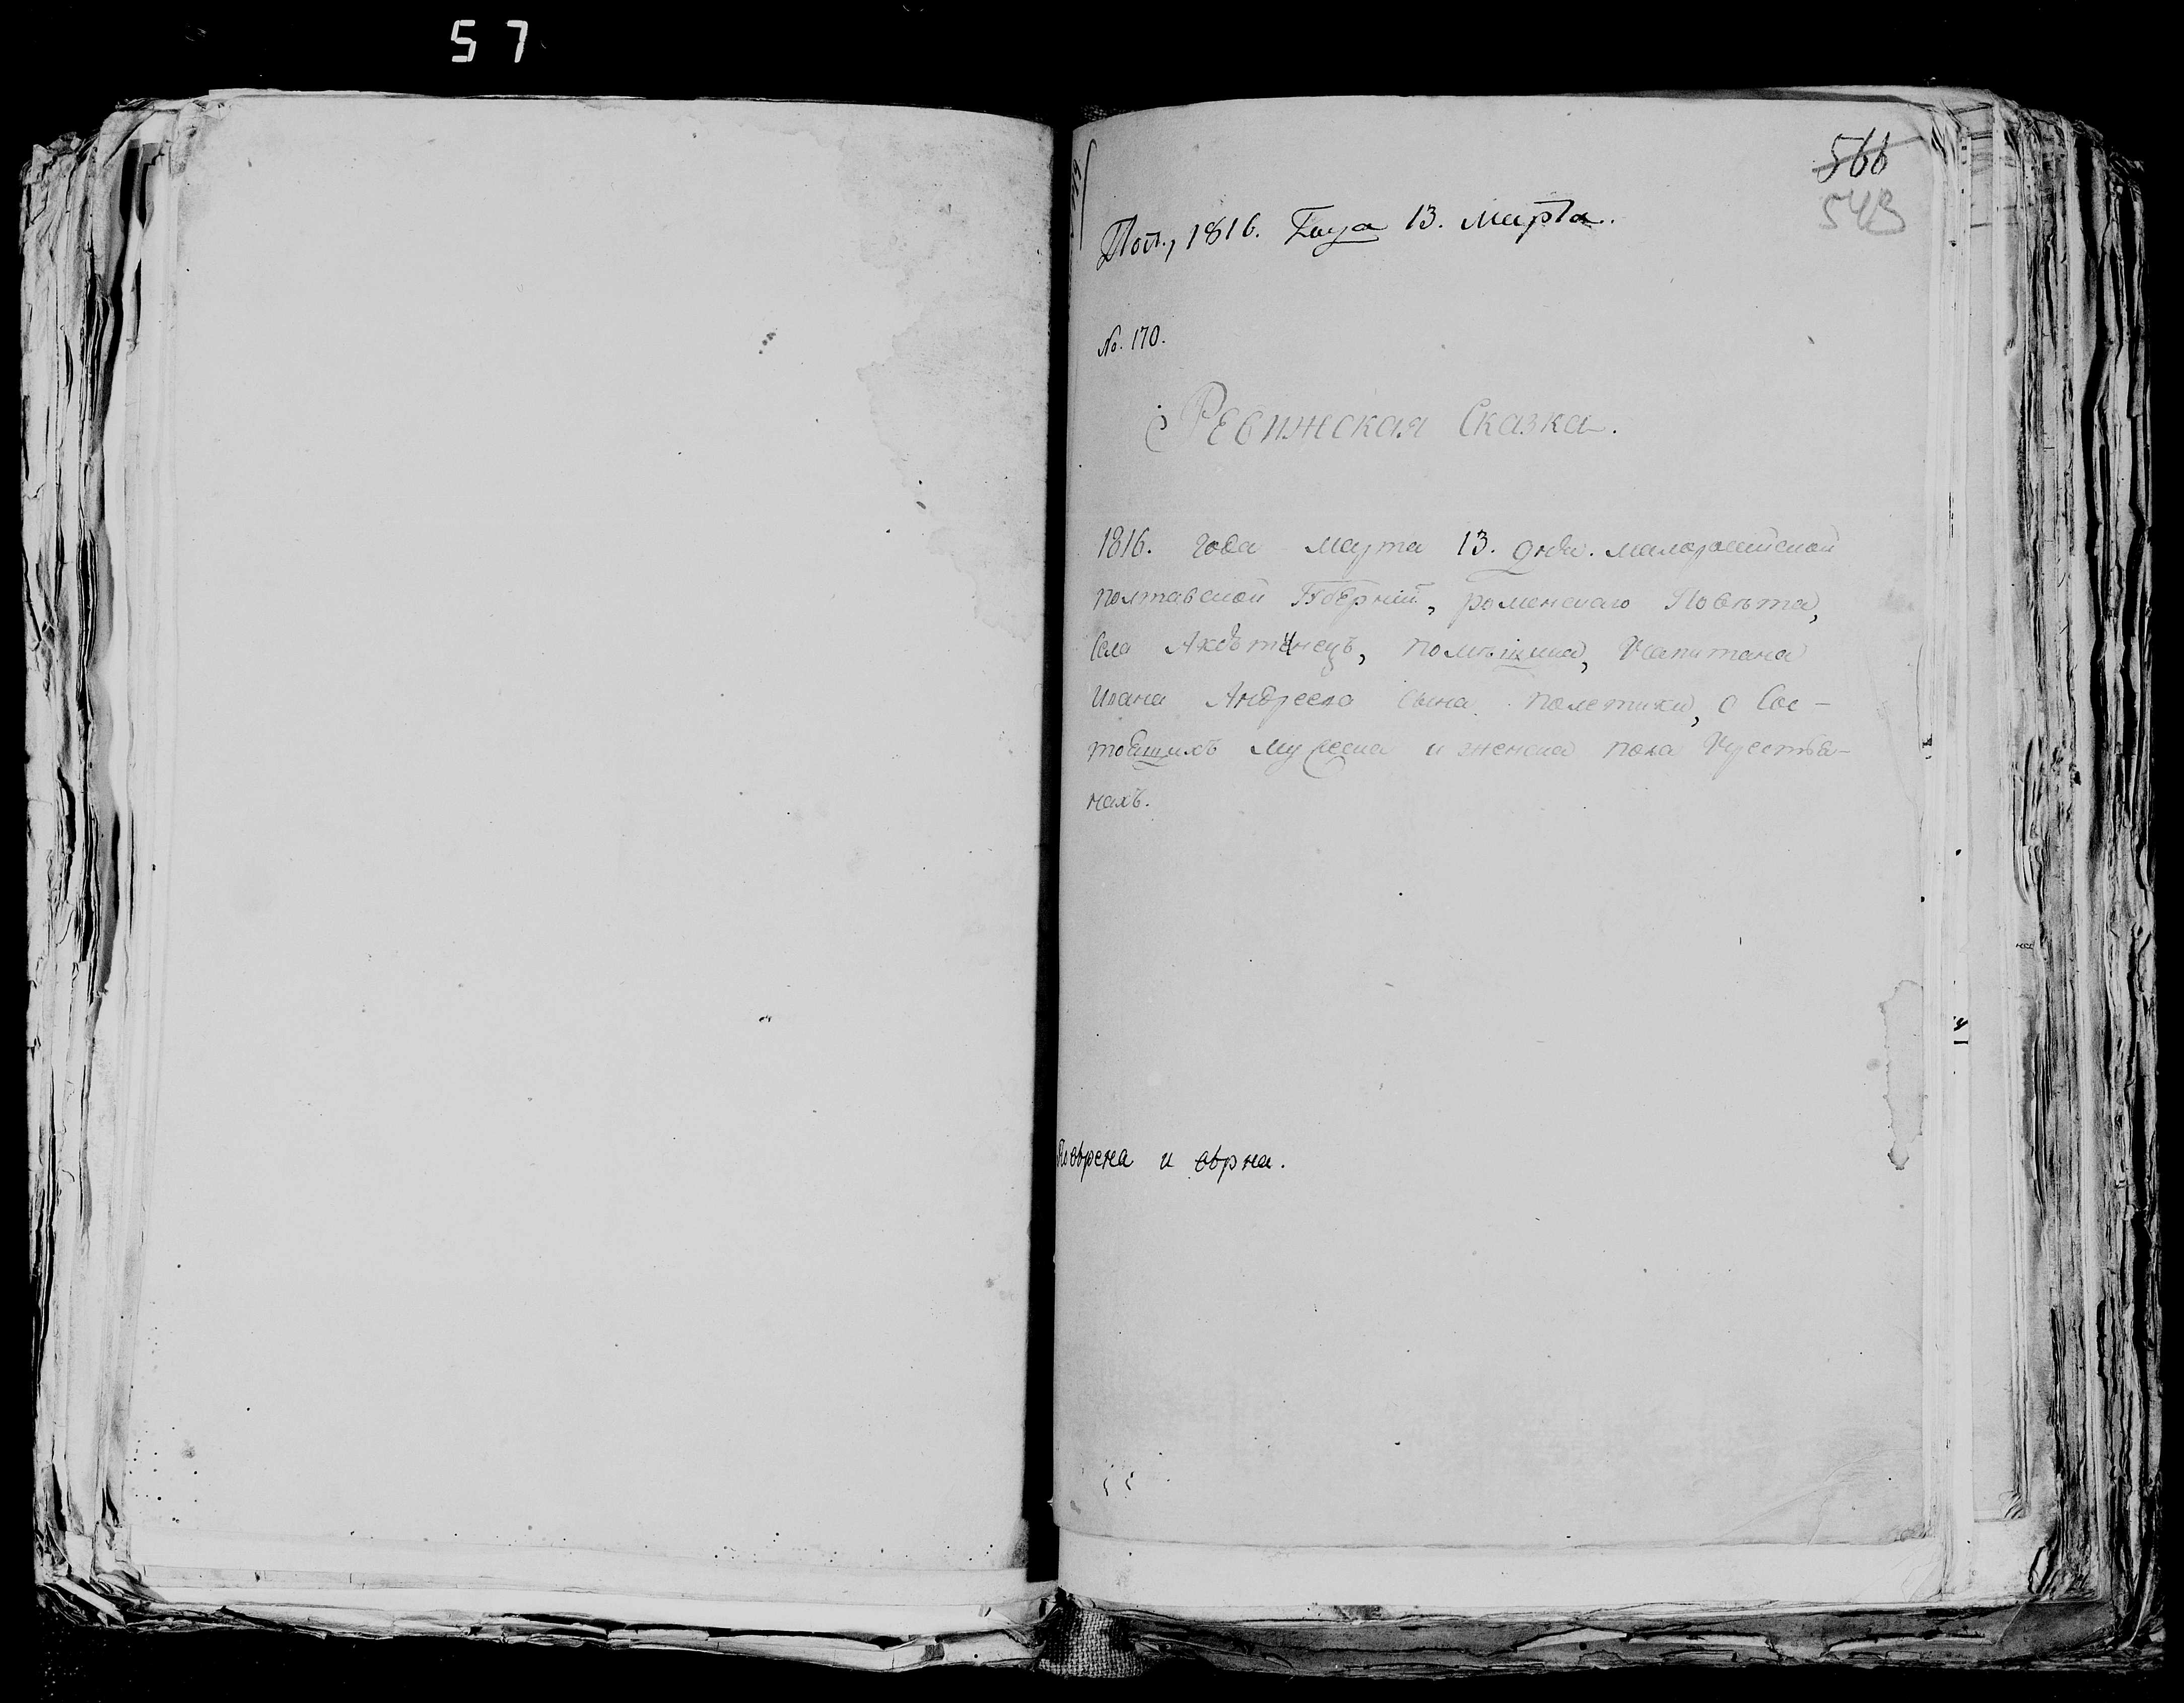 57
566
543
Пол., 1816. Года 13. Марта.
No. 170.
Ревижская Сказка.
1816. года Марта 13. дня. малоросійской
полтавской Губерніи, роменского Повѣта,
Села Ахтѣ, помѣщика, Капитана
Ивана Андреева сына Полетики, о Сос-
тоящихъ мужеска и женска пола Крестья-
нахъ.
Повѣрена и вѣрна.